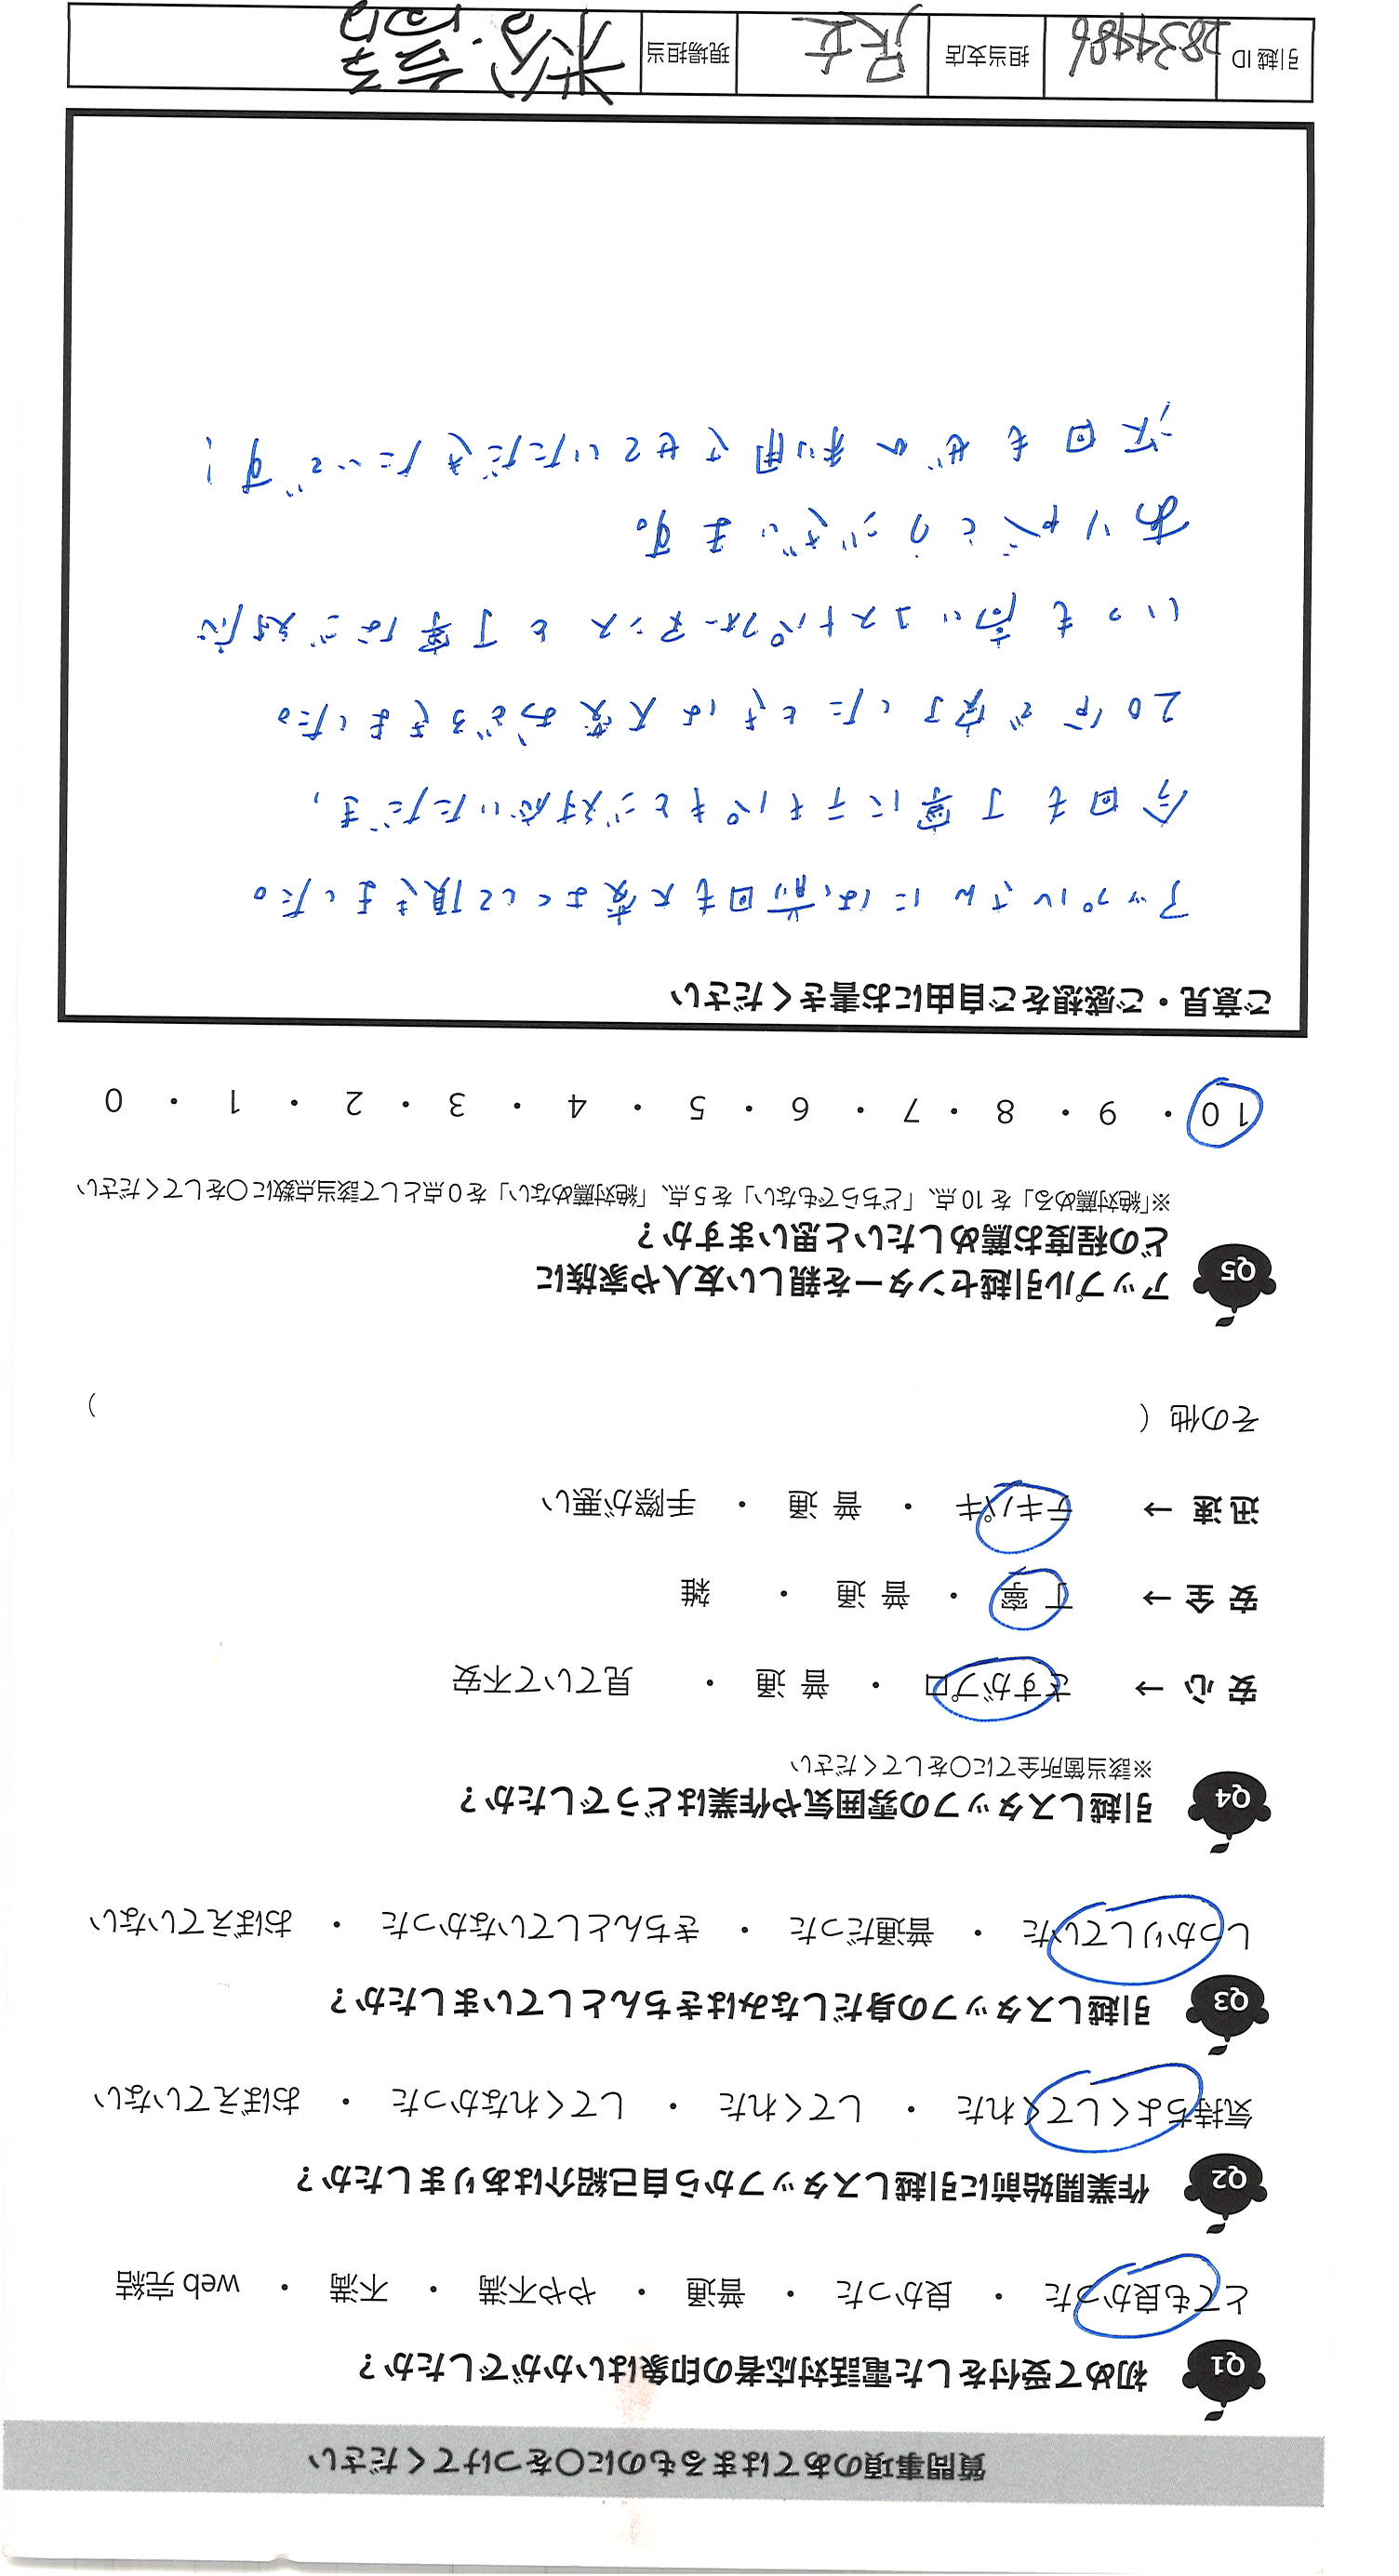 質問事項のあてはまるものに○をつけてください
Q1 初めて受付をした電話対応者の印象はいかがでしたか？
とても良かった ・ 良かった ・ 普通 ・ やや不満 ・ 不満 ・ web 完結
Q2 作業開始前に引越しスタッフから自己紹介はありましたか？
気持ちよくしてくれた ・ してくれた ・ してくれなかった ・ おぼえていない
Q3 引越しスタッフの身だしなみはきちんとしていましたか？
しっかりしていた ・ 普通だった ・ きちんとしていなかった ・ おぼえていない
Q4 引越しスタッフの雰囲気や作業はどうでしたか？
※該当箇所全てに○をしてください
安 心 → さすがプロ ・ 普 通 ・ 見ていて不安
安 全 → 丁 寧 ・ 普 通 ・ 雑
迅 速 → テキパキ ・ 普 通 ・ 手際が悪い
その他 （ ）
Q5 アップル引越センターを親しい友人や家族に
どの程度お薦めしたいと思いますか？
※「絶対薦める」を 10 点、「どちらでもない」を 5 点、「絶対薦めない」を 0 点として該当点数に○をしてください
10 ・ 9 ・ 8 ・ 7 ・ 6 ・ 5 ・ 4 ・ 3 ・ 2 ・ 1 ・ 0
ご意見・ご感想をご自由にお書きください
アップルさんには、前回も大変よくして頂きました。
今回も丁寧にテキパキとご対応いただき、
20分で完了したときは大変おどろきました。
いつも高いコストパフォーマンスと丁寧なご対応
ありがとうございます。
次回もぜひ利用させていただきたいです！
引越 ID 2834486 担当支店 現場担当